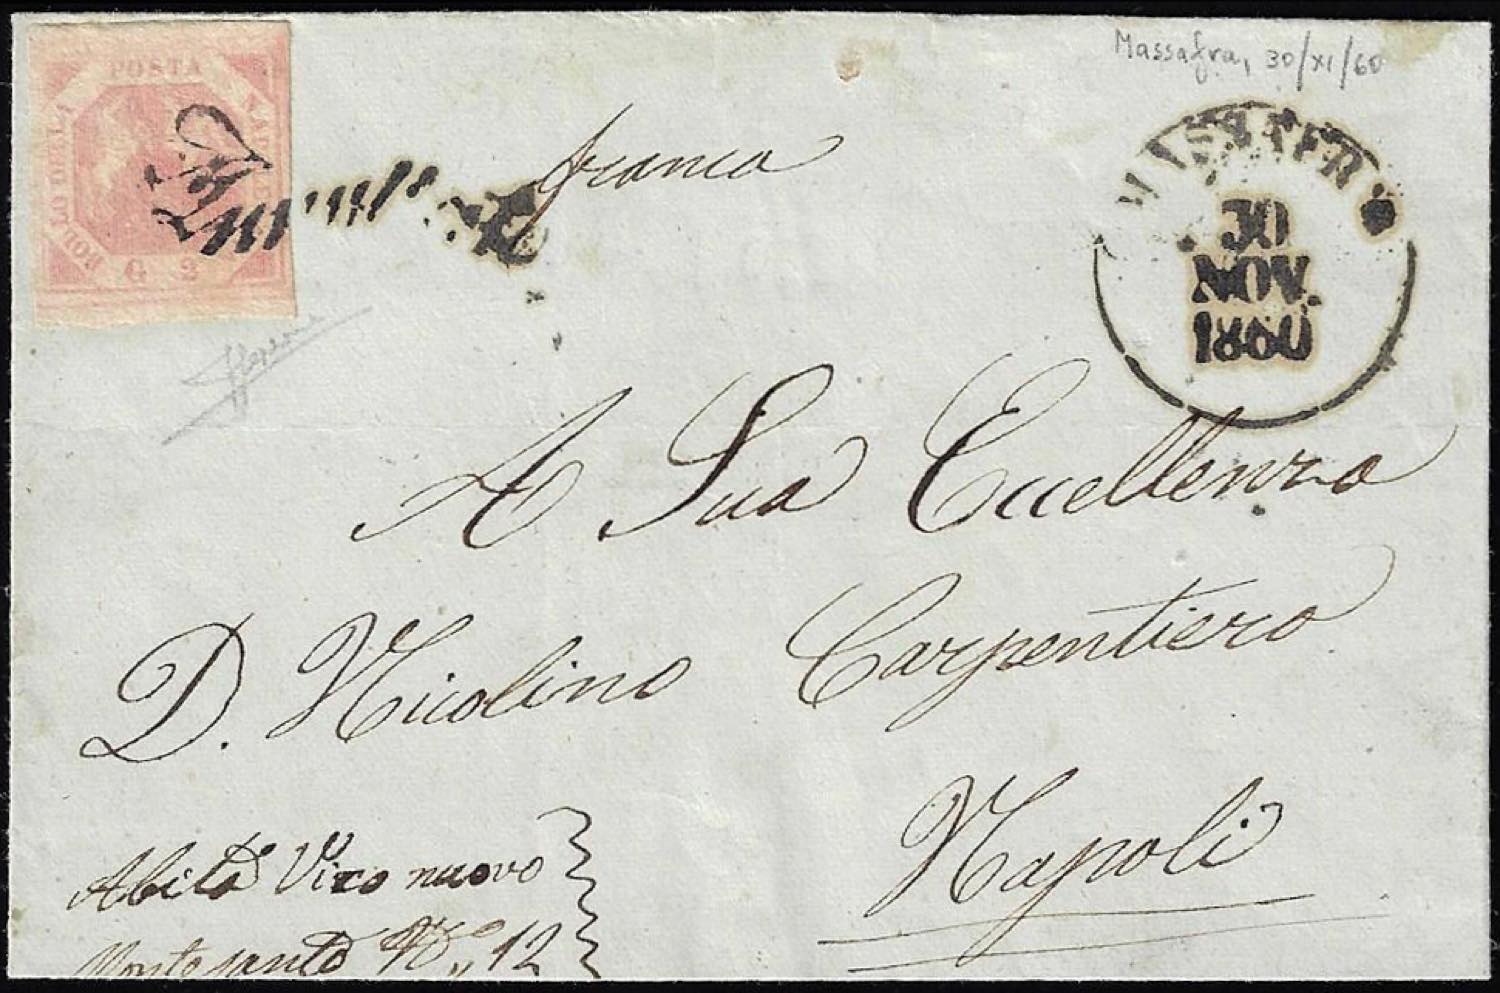 Massafra, 30/XI/60
POSTA
BOLLO DELLA
G 2
franca
30
NOV.
1860
A Sua Eccellenza
D. Nicolino Carpentiero
Napoli
Abita Vico nuovo
Montesanto No 12